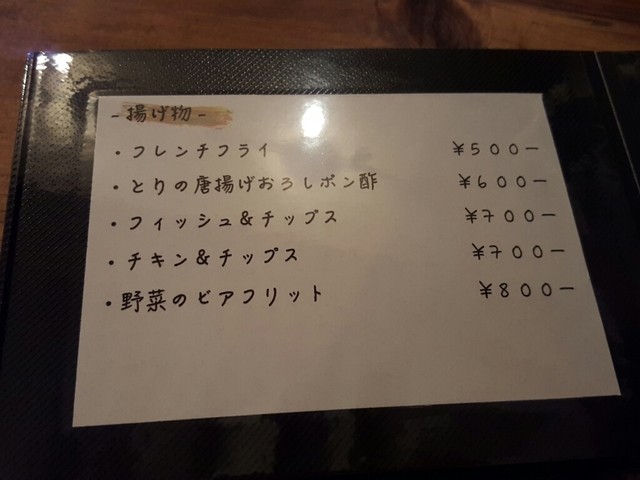 -揚げ物-
・フレンチフライ ¥500ー
・とりの唐揚げおろしポン酢 ¥600ー
・フィッシュ&チップス ¥700ー
・チキン&チップス ¥700ー
・野菜のビアフリット ¥800ー